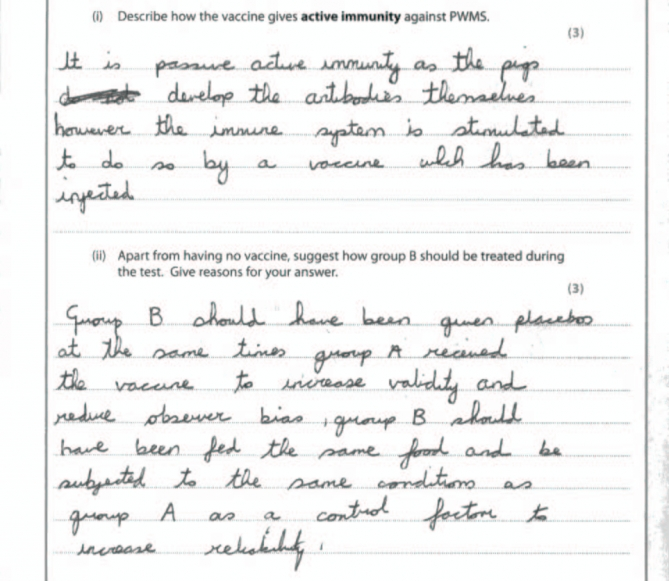 (i) Describe how the vaccine gives active immunity against PWMS.
(3)
It is passive active immunity as the pigs
develop the antibodies themselves
however the immune system is stimulated
to do so by a vaccine which has been
injected
(ii) Apart from having no vaccine, suggest how group B should be treated during
the test. Give reasons for your answer.
(3)
Group B should have been given placebos
at the same times group A received
the vaccine to increase validity and
reduce observer bias, group B should
have been fed the same food and be
subjected to the same conditions as
group A as a control factor to
increase reliability.